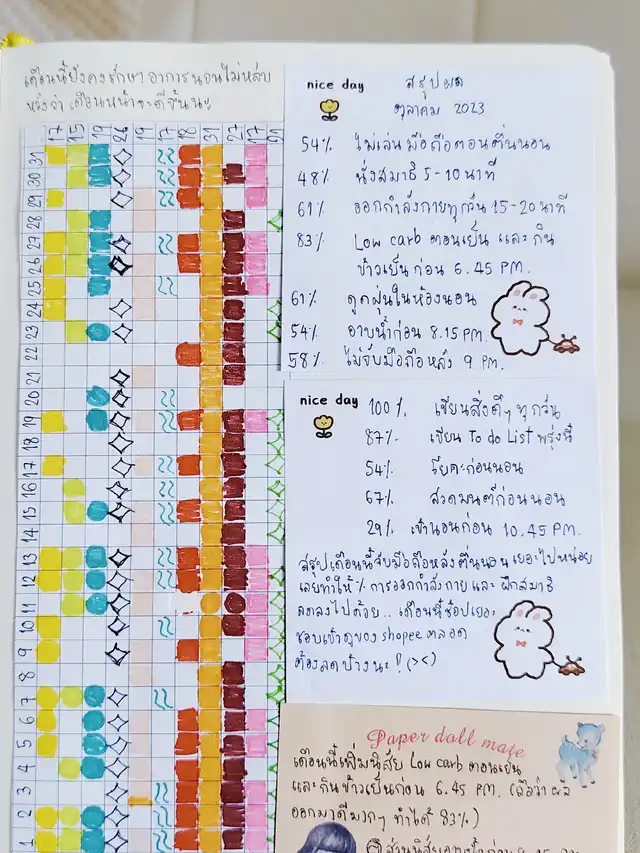 เดือนนี้ยังคงรักษาอาการนอนไม่หลับ
หวังว่าเดือนหน้าจะดีขึ้นนะ
17 15 19 26 19 17 18 31 27 17 21
31
30
29
28
27
26
25
24
23
22
21
20
19
18
17
16
15
14
13
12
11
10
9
8
7
6
5
4
3
2
1
nice day
สรุปผล
ตุลาคม 2023
54% ไม่เล่นมือถือตอนตื่นนอน
48% นั่งสมาธิ 5-10 นาที
61% ออกกำลังกายทุกวัน 15-20 นาที
83% Low carb ตอนเย็น และ กิน
ข้าวเย็นก่อน 6.45 PM.
61% ดูดฝุ่นในห้องนอน
54% อาบน้ำก่อน 8.15 PM.
58% ไม่จับมือถือหลัง 9 PM.
nice day
100% เขียนสิ่งดีๆ ทุกวัน
87% เขียน To do List พรุ่งนี้
54% โยคะก่อนนอน
67% สวดมนต์ก่อนนอน
29% เข้านอนก่อน 10.45 PM.
สรุปเดือนนี้จับมือถือหลังตื่นนอนเยอะไปหน่อย
เลยทำให้ % การออกกำลังกายและฝึกสมาธิ
ลดลงไปด้วย.. เดือนนี้ช้อปเยอะ
ชอบเข้าดูของ shopee ตลอด
ต้องลดบ้างนะ! (><)
Paper doll mate
เดือนนี้เพิ่มนิสัย Low carb ตอนเย็น
และกินข้าวเย็นก่อน 6.45 PM. (ถือว่าผล
ออกมาดีมากๆ ทำได้ 83%)